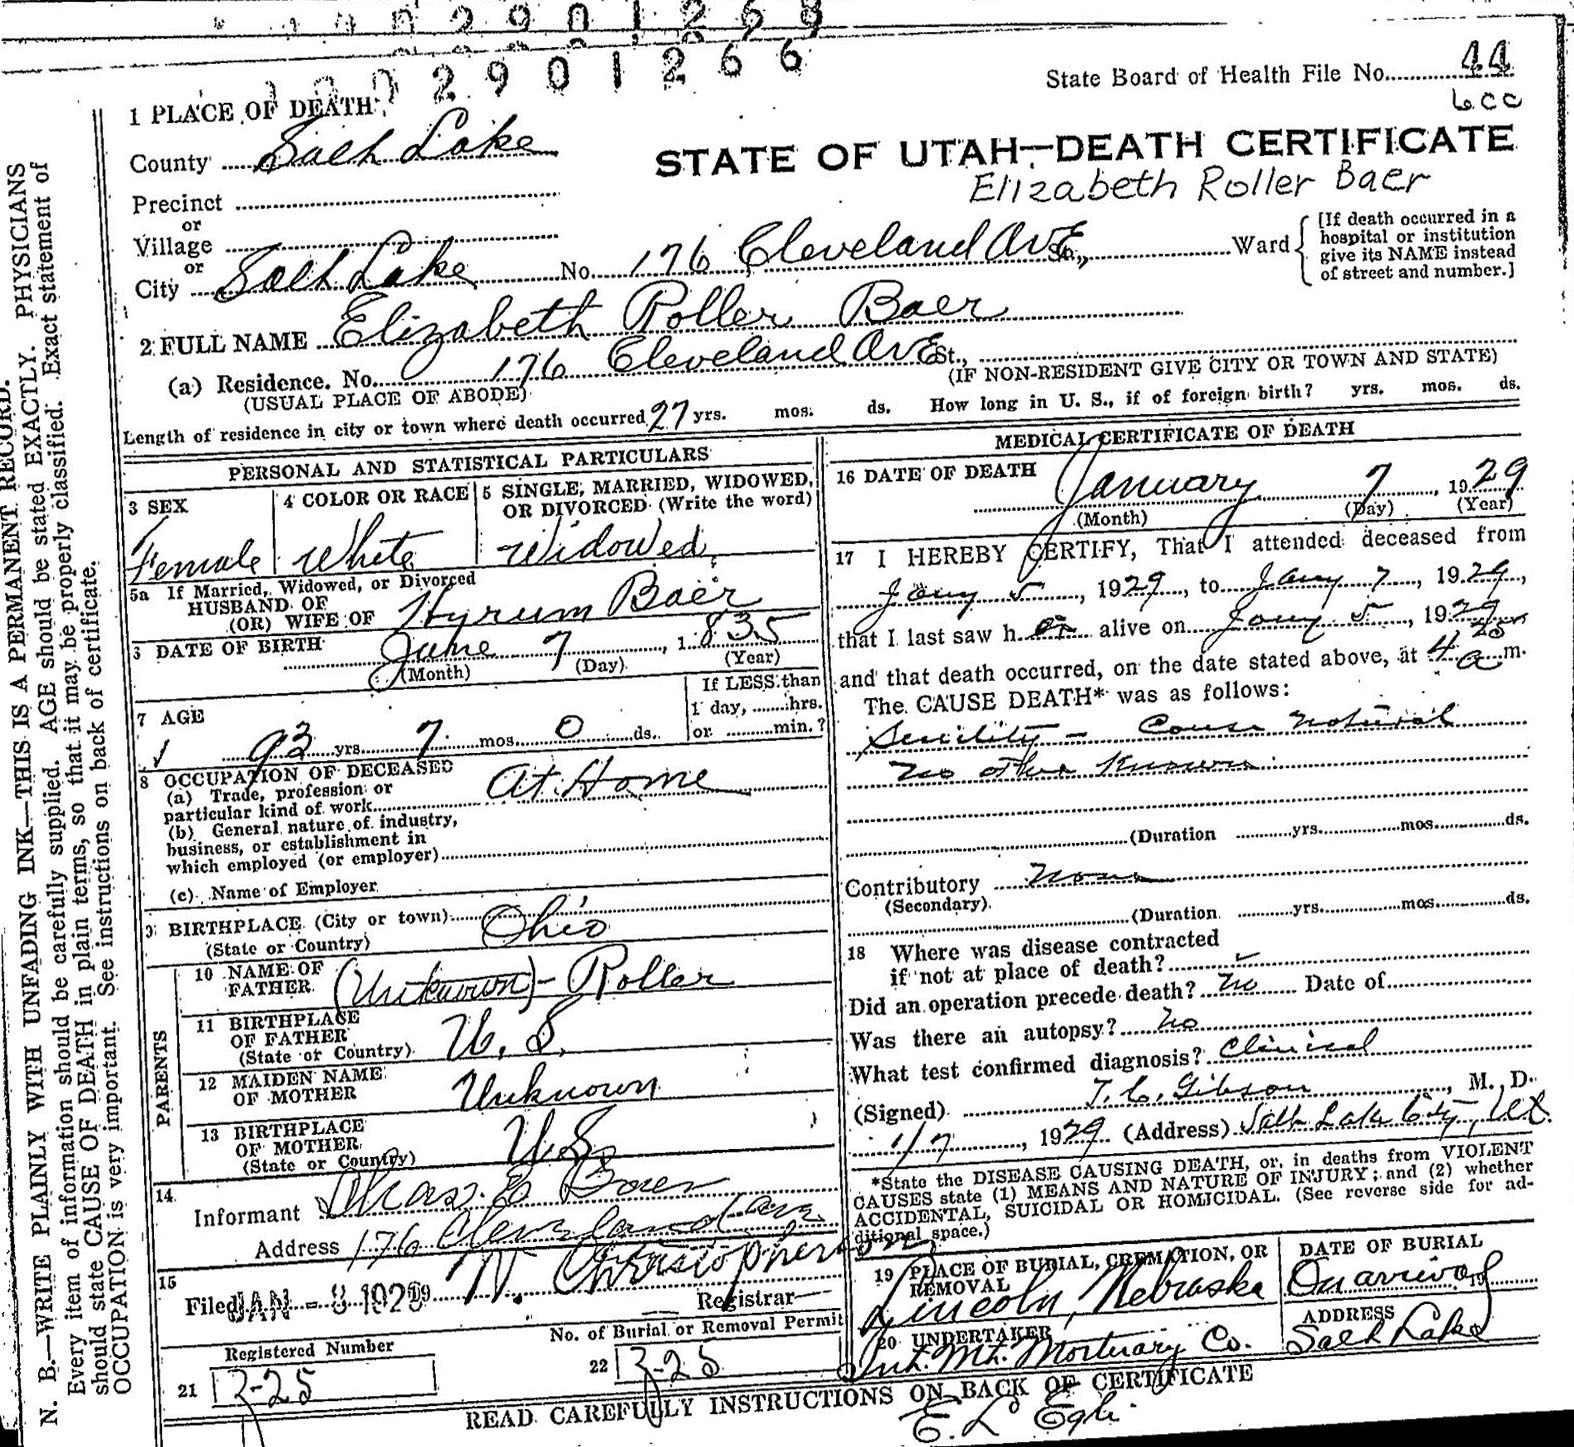 1002901266
State Board of Health File No. 44
1 PLACE OF DEATH
County Salt Lake
STATE OF UTAH—DEATH CERTIFICATE
Elizabeth Roller Baer
Precinct
or
Village
or
City Salt Lake No. 176 Cleveland Ave St., Ward
[If death occurred in a
hospital or institution
give its NAME instead
of street and number.]
2 FULL NAME Elizabeth Roller Baer
(a) Residence. No. 176 Cleveland Ave St.,
(USUAL PLACE OF ABODE) (IF NON-RESIDENT GIVE CITY OR TOWN AND STATE)
Length of residence in city or town where death occurred 27 yrs. mos. ds. How long in U. S., if of foreign birth? yrs. mos. ds.
PERSONAL AND STATISTICAL PARTICULARS
3 SEX
Female
4 COLOR OR RACE
White
5 SINGLE, MARRIED, WIDOWED,
OR DIVORCED (Write the word)
Widowed
5a If Married, Widowed, or Divorced
HUSBAND OF
(OR) WIFE OF Hyrum Baer
DATE OF BIRTH June 7, 1835
(Month) (Day) (Year)
7 AGE
93 yrs. 7 mos. 0 ds.
If LESS than
1 day, hrs.
or min.?
8 OCCUPATION OF DECEASED
(a) Trade, profession or
particular kind of work At Home
(b) General nature of industry,
business, or establishment in
which employed (or employer)
(c) Name of Employer
9 BIRTHPLACE (City or town) Ohio
(State or Country)
PARENTS
10 NAME OF
FATHER (Unknown)- Roller
11 BIRTHPLACE
OF FATHER
(State or Country) U. S.
12 MAIDEN NAME
OF MOTHER Unknown
13 BIRTHPLACE
OF MOTHER
(State or Country) U.S.
14
Informant Chas. E Baer
Address 176 Cleveland Ave
15
Filed JAN - 8 1929 19 N. Christopherson
Registrar
Registered Number
21 3-25
No. of Burial or Removal Permit
22 3-25
MEDICAL CERTIFICATE OF DEATH
16 DATE OF DEATH January 7, 1929
(Month) (Day) (Year)
17 I HEREBY CERTIFY, That I attended deceased from
Jany 5, 1929, to Jany 7, 1929,
that I last saw h er alive on Jany 5, 1929
and that death occurred, on the date stated above, at 4 25 a m.
The CAUSE DEATH* was as follows:
Senility - Cause Natural
No other Known
(Duration yrs. mos. ds.
Contributory None
(Secondary)
(Duration yrs. mos. ds.
18 Where was disease contracted
if not at place of death?
Did an operation precede death? No Date of
Was there an autopsy? No
What test confirmed diagnosis? Clinical
(Signed) T. C. Gibson, M. D.
1/7, 1929 (Address) Salt Lake City, Ut.
*State the DISEASE CAUSING DEATH, or, in deaths from VIOLENT
CAUSES state (1) MEANS AND NATURE OF INJURY; and (2) whether
ACCIDENTAL, SUICIDAL OR HOMICIDAL. (See reverse side for ad-
ditional space.)
19 PLACE OF BURIAL, CREMATION, OR
REMOVAL
Lincoln, Nebraska
DATE OF BURIAL
On arrival 19
20 UNDERTAKER
Int. Mt. Mortuary Co.
ADDRESS
Salt Lake
READ CAREFULLY INSTRUCTIONS ON BACK OF CERTIFICATE
E. L Egli
N. B.—WRITE PLAINLY WITH UNFADING INK—THIS IS A PERMANENT RECORD.
Every item of information should be carefully supplied. AGE should be stated EXACTLY. PHYSICIANS
should state CAUSE OF DEATH in plain terms, so that it may be properly classified. Exact statement of
OCCUPATION is very important. See instructions on back of certificate.